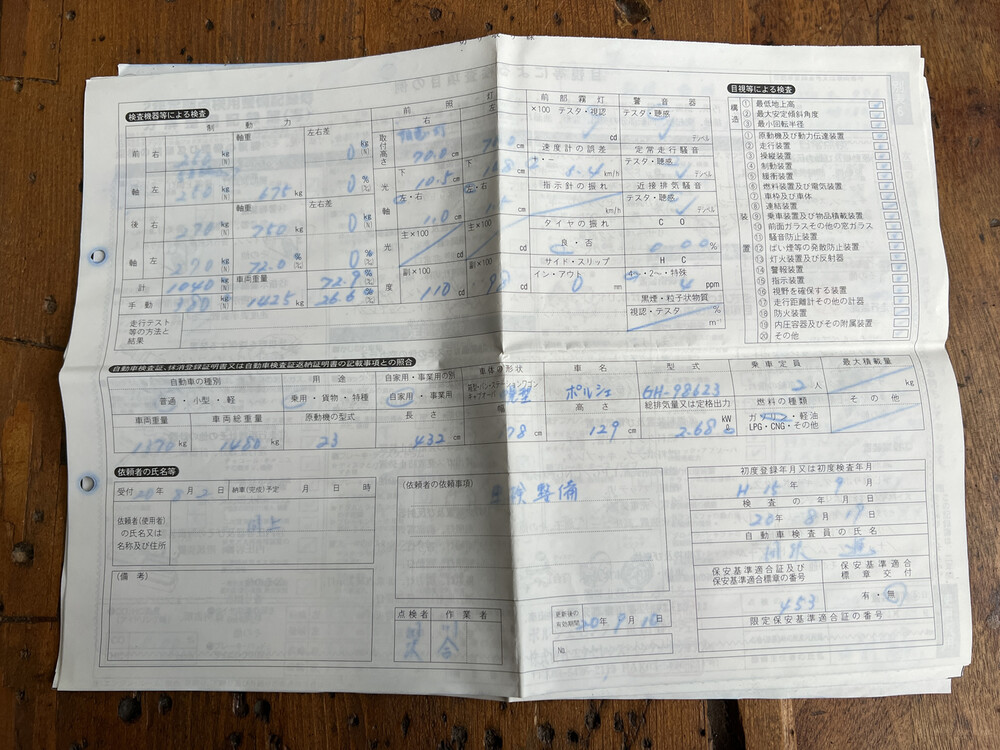 検査機器等による検査
目視等による検査
制動力
前照灯
前部霧灯
警音器
軸重
左右差
右
左
×100 テスタ・視認
テスタ・聴感
cd
デシベル
前 右
kg
(N)
0 kg
(N)
取付高さ
70.0 cm
速度計の誤差
定常走行騒音
+・-
テスタ・聴感
km/h
デシベル
軸 左
250 kg
(N)
675 kg
0 %
下
10.5 cm
下
指示計の振れ
近接排気騒音
km/h
テスタ・聴感
デシベル
後 右
270 kg
(N)
軸重
750 kg
左右差
0 kg
(N)
光軸
左・右
11.0 cm
左・右
タイヤの振れ
CO
良・否
0.00 %
軸 左
270 kg
(N)
72.0 %
0 %
主×100
cd
主×100
cd
サイド・スリップ
HC
イン・アウト
0 mm
・2~・特殊
4 ppm
計
1040 kg
(N)
車両重量
1425 kg
72.9 %
光度
副×100
110 cd
副×100
cd
手動
380 kg
(N)
26.6 %
黒煙・粒子状物質
視認・テスタ
%
m⁻¹
走行テスト
等の方法と
結果
構造
① 最低地上高
② 最大安定傾斜角度
③ 最小回転半径
装置
① 原動機及び動力伝達装置
② 走行装置
③ 操縦装置
④ 制動装置
⑤ 緩衝装置
⑥ 燃料装置及び電気装置
⑦ 車枠及び車体
⑧ 連結装置
⑨ 乗車装置及び物品積載装置
⑩ 前面ガラスその他の窓ガラス
⑪ 騒音防止装置
⑫ ばい煙等の発散防止装置
⑬ 灯火装置及び反射器
⑭ 警報装置
⑮ 指示装置
⑯ 視野を確保する装置
⑰ 走行距離計その他の計器
⑱ 防火装置
⑲ 内圧容器及びその附属装置
⑳ その他
自動車検査証、抹消登録証明書又は自動車検査証返納証明書の記載事項との照合
自動車の種別
用途
自家用・事業用の別
車体の形状
車名
型式
乗車定員
最大積載量
普通・小型・軽
乗用・貨物・特種
自家用・事業用
ポルシェ
GH-98623
2 人
kg
車両重量
車両総重量
原動機の型式
長さ
幅
高さ
総排気量又は定格出力
燃料の種類
その他
1370 kg
1480 kg
23
432 cm
78 cm
129 cm
2.68
kW
ガソリン・軽油
LPG・CNG・その他
依頼者の氏名等
受付 20年 8月 2日
納車(完成)予定
月 日 時
依頼者(使用者)
の氏名又は
名称及び住所
同上
(備 考)
(依頼者の依頼事項)
車検整備
点検者
作業者
更新後の
有効期間
20年 9月 10日
No.
初度登録年月又は初度検査年月
H 15年 9月
検査の年月日
20年 8月 19日
自動車検査員の氏名
保安基準適合証及び
保安基準適合標章の番号
保安基準適合
標章交付
453
有・無
限定保安基準適合証の番号